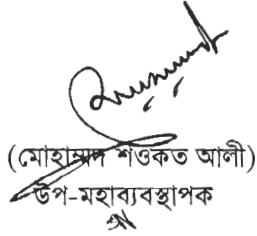 (মোহাম্মাদ শওকত আলী)
উপ-মহাব্যবস্থাপক